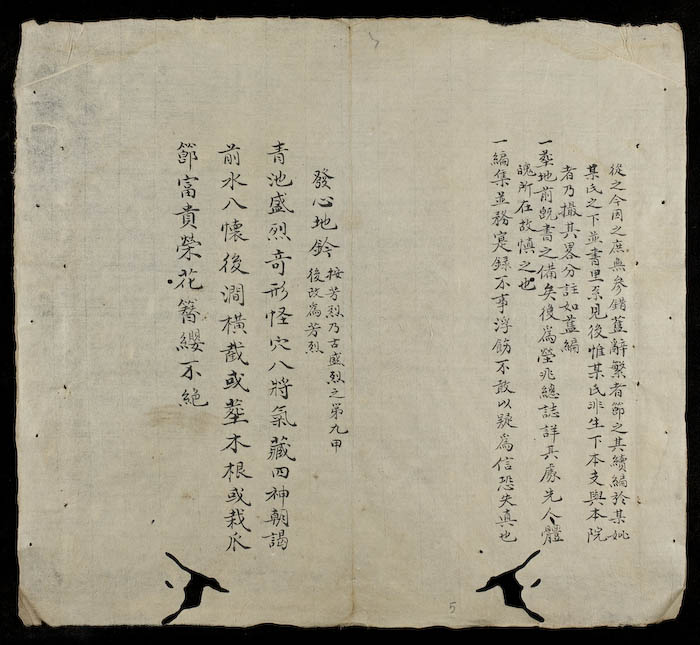 從之今因之庶無參錯舊辭繁者節之其續編於某妣
某氏之下並書里系見後惟某氏非生下本支與本院
者乃撮其畧分註如舊編
一塟地前既書之備矣後為塋兆總誌詳具處先人體
魄所在故慎之也
一編集並務寔錄不事浮飭不敢以疑為信恐失真也
發心地鈐 按芳烈乃古盛烈之第九甲
後改為芳烈
青池盛烈奇形怪穴八將氣藏四神朝謁
前水八懷後澗橫截或塟木根或栽瓜
節富貴榮花簪纓不絶
5